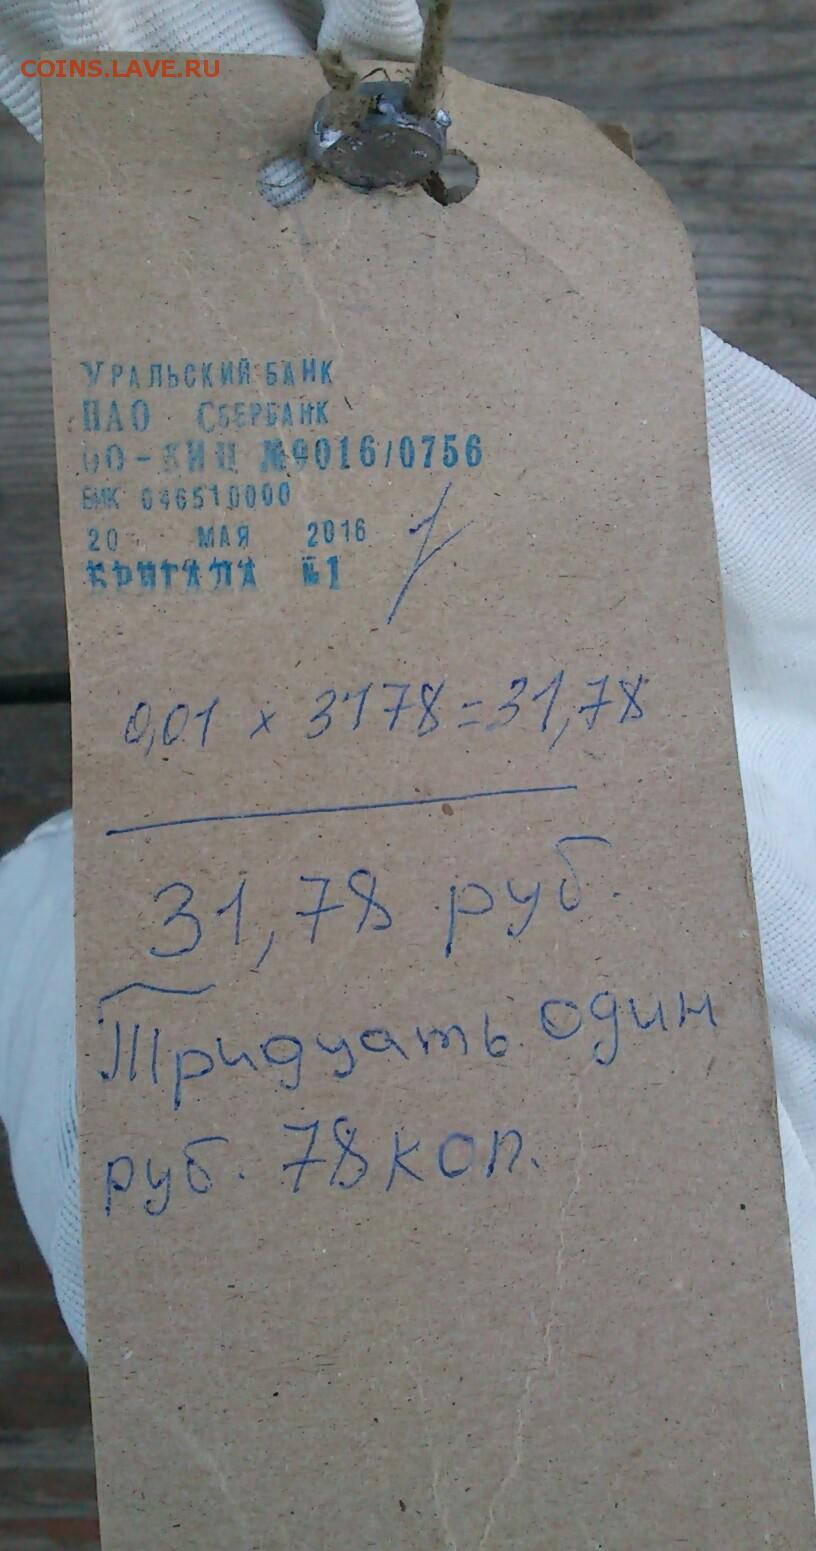 COINS.LAVE.RU
УРАЛЬСКИЙ БАНК
ПАО СБЕРБАНК
ОО-КИЦ №9016/0756
БИК 046510000
20 МАЯ 2016
БРИГАДА №1
0,01 x 3178 = 31,78
31,78 руб.
Тридцать один
руб. 78 коп.